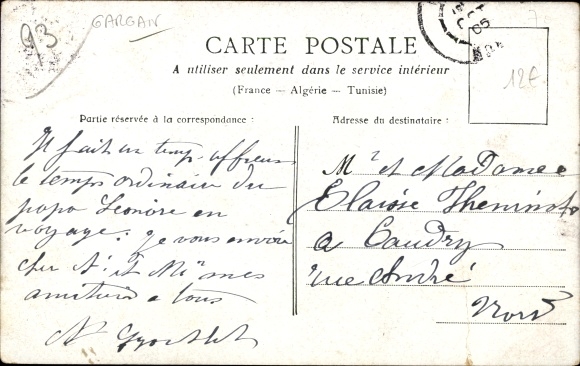 93
GARGAN
OCT
05
CARTE POSTALE
A utiliser seulement dans le service intérieur
(France — Algérie — Tunisie)
12€
Partie réservée à la correspondance :
Il fait un temps affreux
le temps ordinaire du
papa Leonore en
voyage : je vous envoie
cher Mr mes
a tous
Adresse du destinataire :
Mr et Madame
Eloise
a Caudry
rue André
Nord